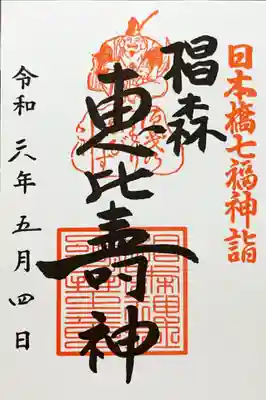 日本橋七福神詣
椙森
恵比壽神
令和六年五月四日